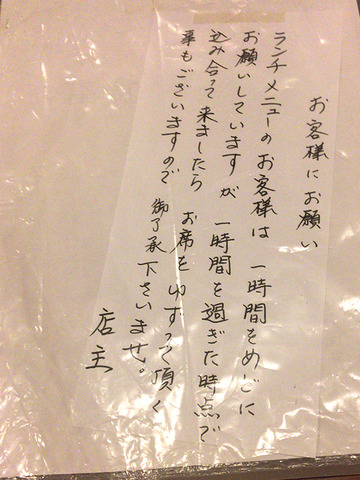 お客様にお願い
ランチメニューのお客様は 一時間をめどに
お願いしていますが 一時間を過ぎた時点で
込み合って来ましたら お席をゆずって頂く
事もございますので 御了承下さいませ。
店主